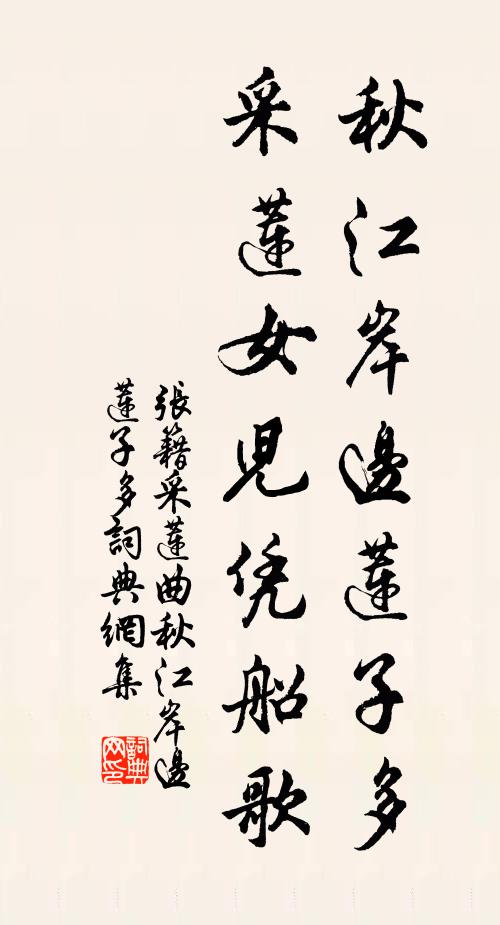 秋江岸邊蓮子多
采蓮女兒凭船歌
張籍采蓮曲秋江岸邊
蓮子多詞典網集
詞典
网印